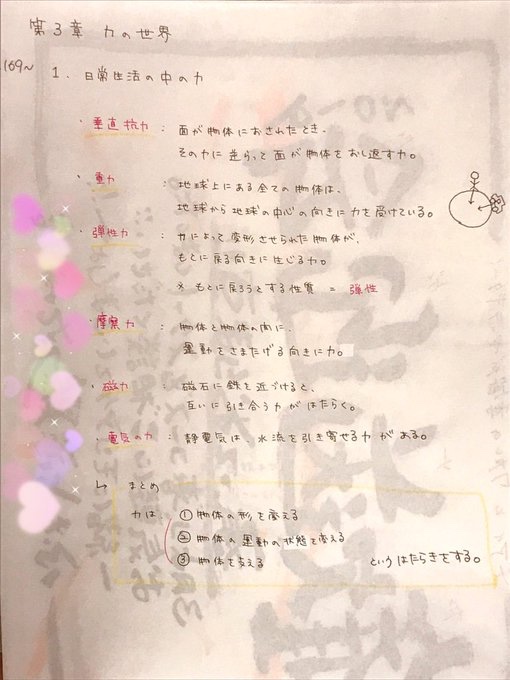 第3章 力の世界
169~
1. 日常生活の中の力
・垂直抗力 : 面が物体におされたとき、
その力に逆らって面が物体をおし返す力。
・重力 : 地球上にある全ての物体は、
地球から地球の中心の向きに力を受けている。
・弾性力 : 力によって変形させられた物体が、
もとに戻る向きに生じる力。
※ もとに戻ろうとする性質 = 弾性
・摩擦力 : 物体と物体の間に、
運動をさまたげる向きに力。
・磁力 : 磁石に鉄を近づけると、
互いに引き合う力がはたらく。
・電気の力 : 静電気は、水流を引き寄せる力がある。
↳ まとめ
力は、① 物体の形を変える
② 物体の運動の状態を変える
③ 物体を支える というはたらきをする。